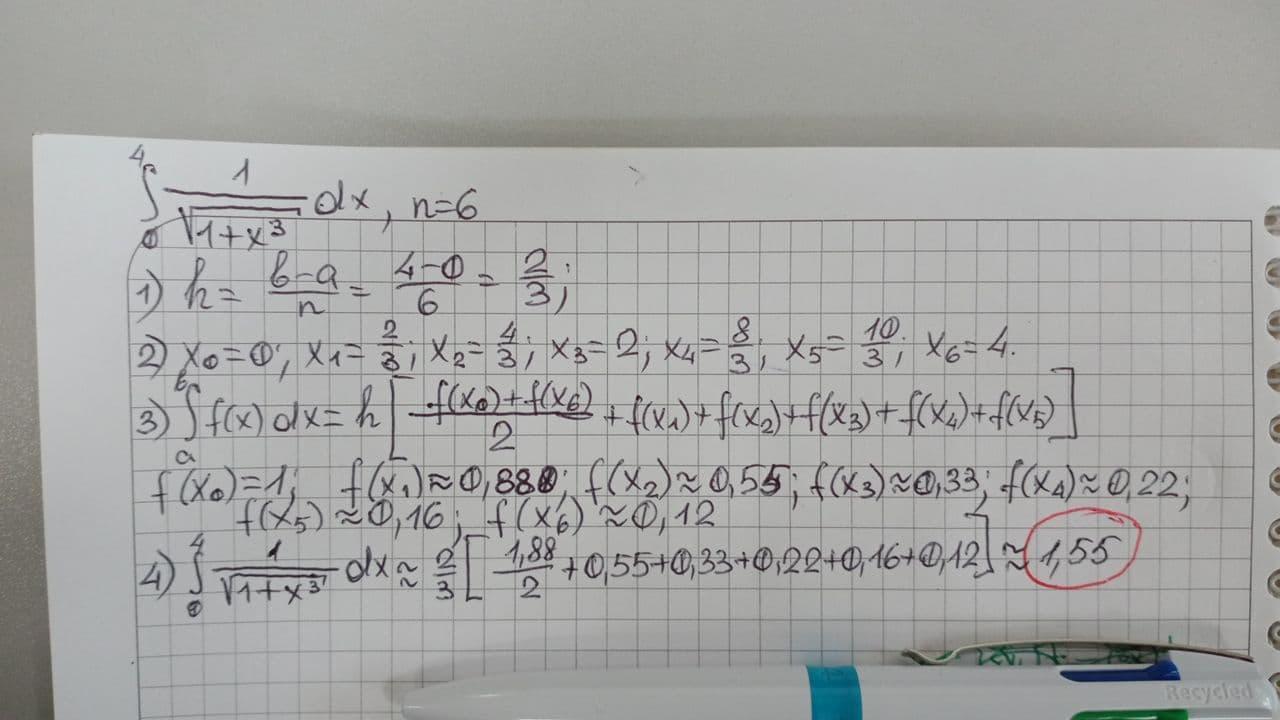 ∫₀⁴ 1/√(1+x³) dx, n=6
1) h = (b-a)/n = (4-0)/6 = 2/3;
2) x₀=0; x₁=2/3; x₂=4/3; x₃=2; x₄=8/3; x₅=10/3; x₆=4.
3) ∫ₐᵇ f(x) dx = h[(f(x₀)+f(x₆))/2 + f(x₁)+f(x₂)+f(x₃)+f(x₄)+f(x₅)]
f(x₀)=1; f(x₁)≈0,880; f(x₂)≈0,55; f(x₃)≈0,33; f(x₄)≈0,22;
f(x₅)≈0,16; f(x₆)≈0,12
4) ∫₀⁴ 1/√(1+x³) dx ≈ 2/3 [1,88/2 + 0,55+0,33+0,22+0,16+0,12] ≈ 1,55
Recycled